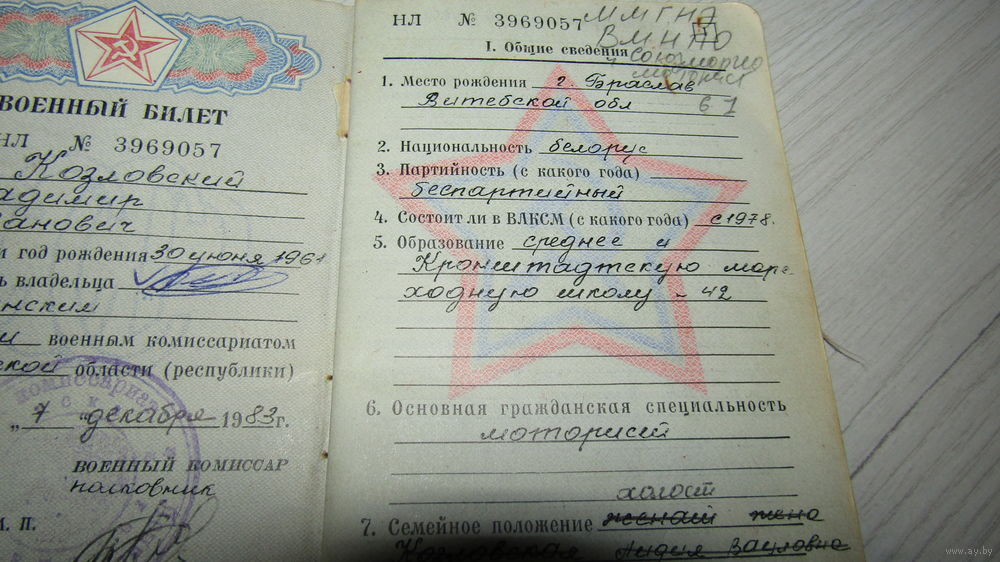 ВОЕННЫЙ БИЛЕТ
НЛ № 3969057
Козловский
адимир
анович
и год рождения 30 июня 1961
ь владельца
нским
и военным комиссариатом
ской области (республики)
„7" декабря 1983 г.
ВОЕННЫЙ КОМИССАР
полковник
М. П.
комиссариат
НЛ № 3969057
ММГНА
ВМННО
I. Общие сведения
1. Место рождения г. Браслав
Витебской обл
в 1
2. Национальность белорус
3. Партийность (с какого года)
беспартийный
4. Состоит ли в ВЛКСМ (с какого года) с 1978.
5. Образование среднее и
Кронштадтскую море
ходную школу - 42
6. Основная гражданская специальность
моторист
холост
7. Семейное положение женат жена
Козловская Лидия
www.ay.by